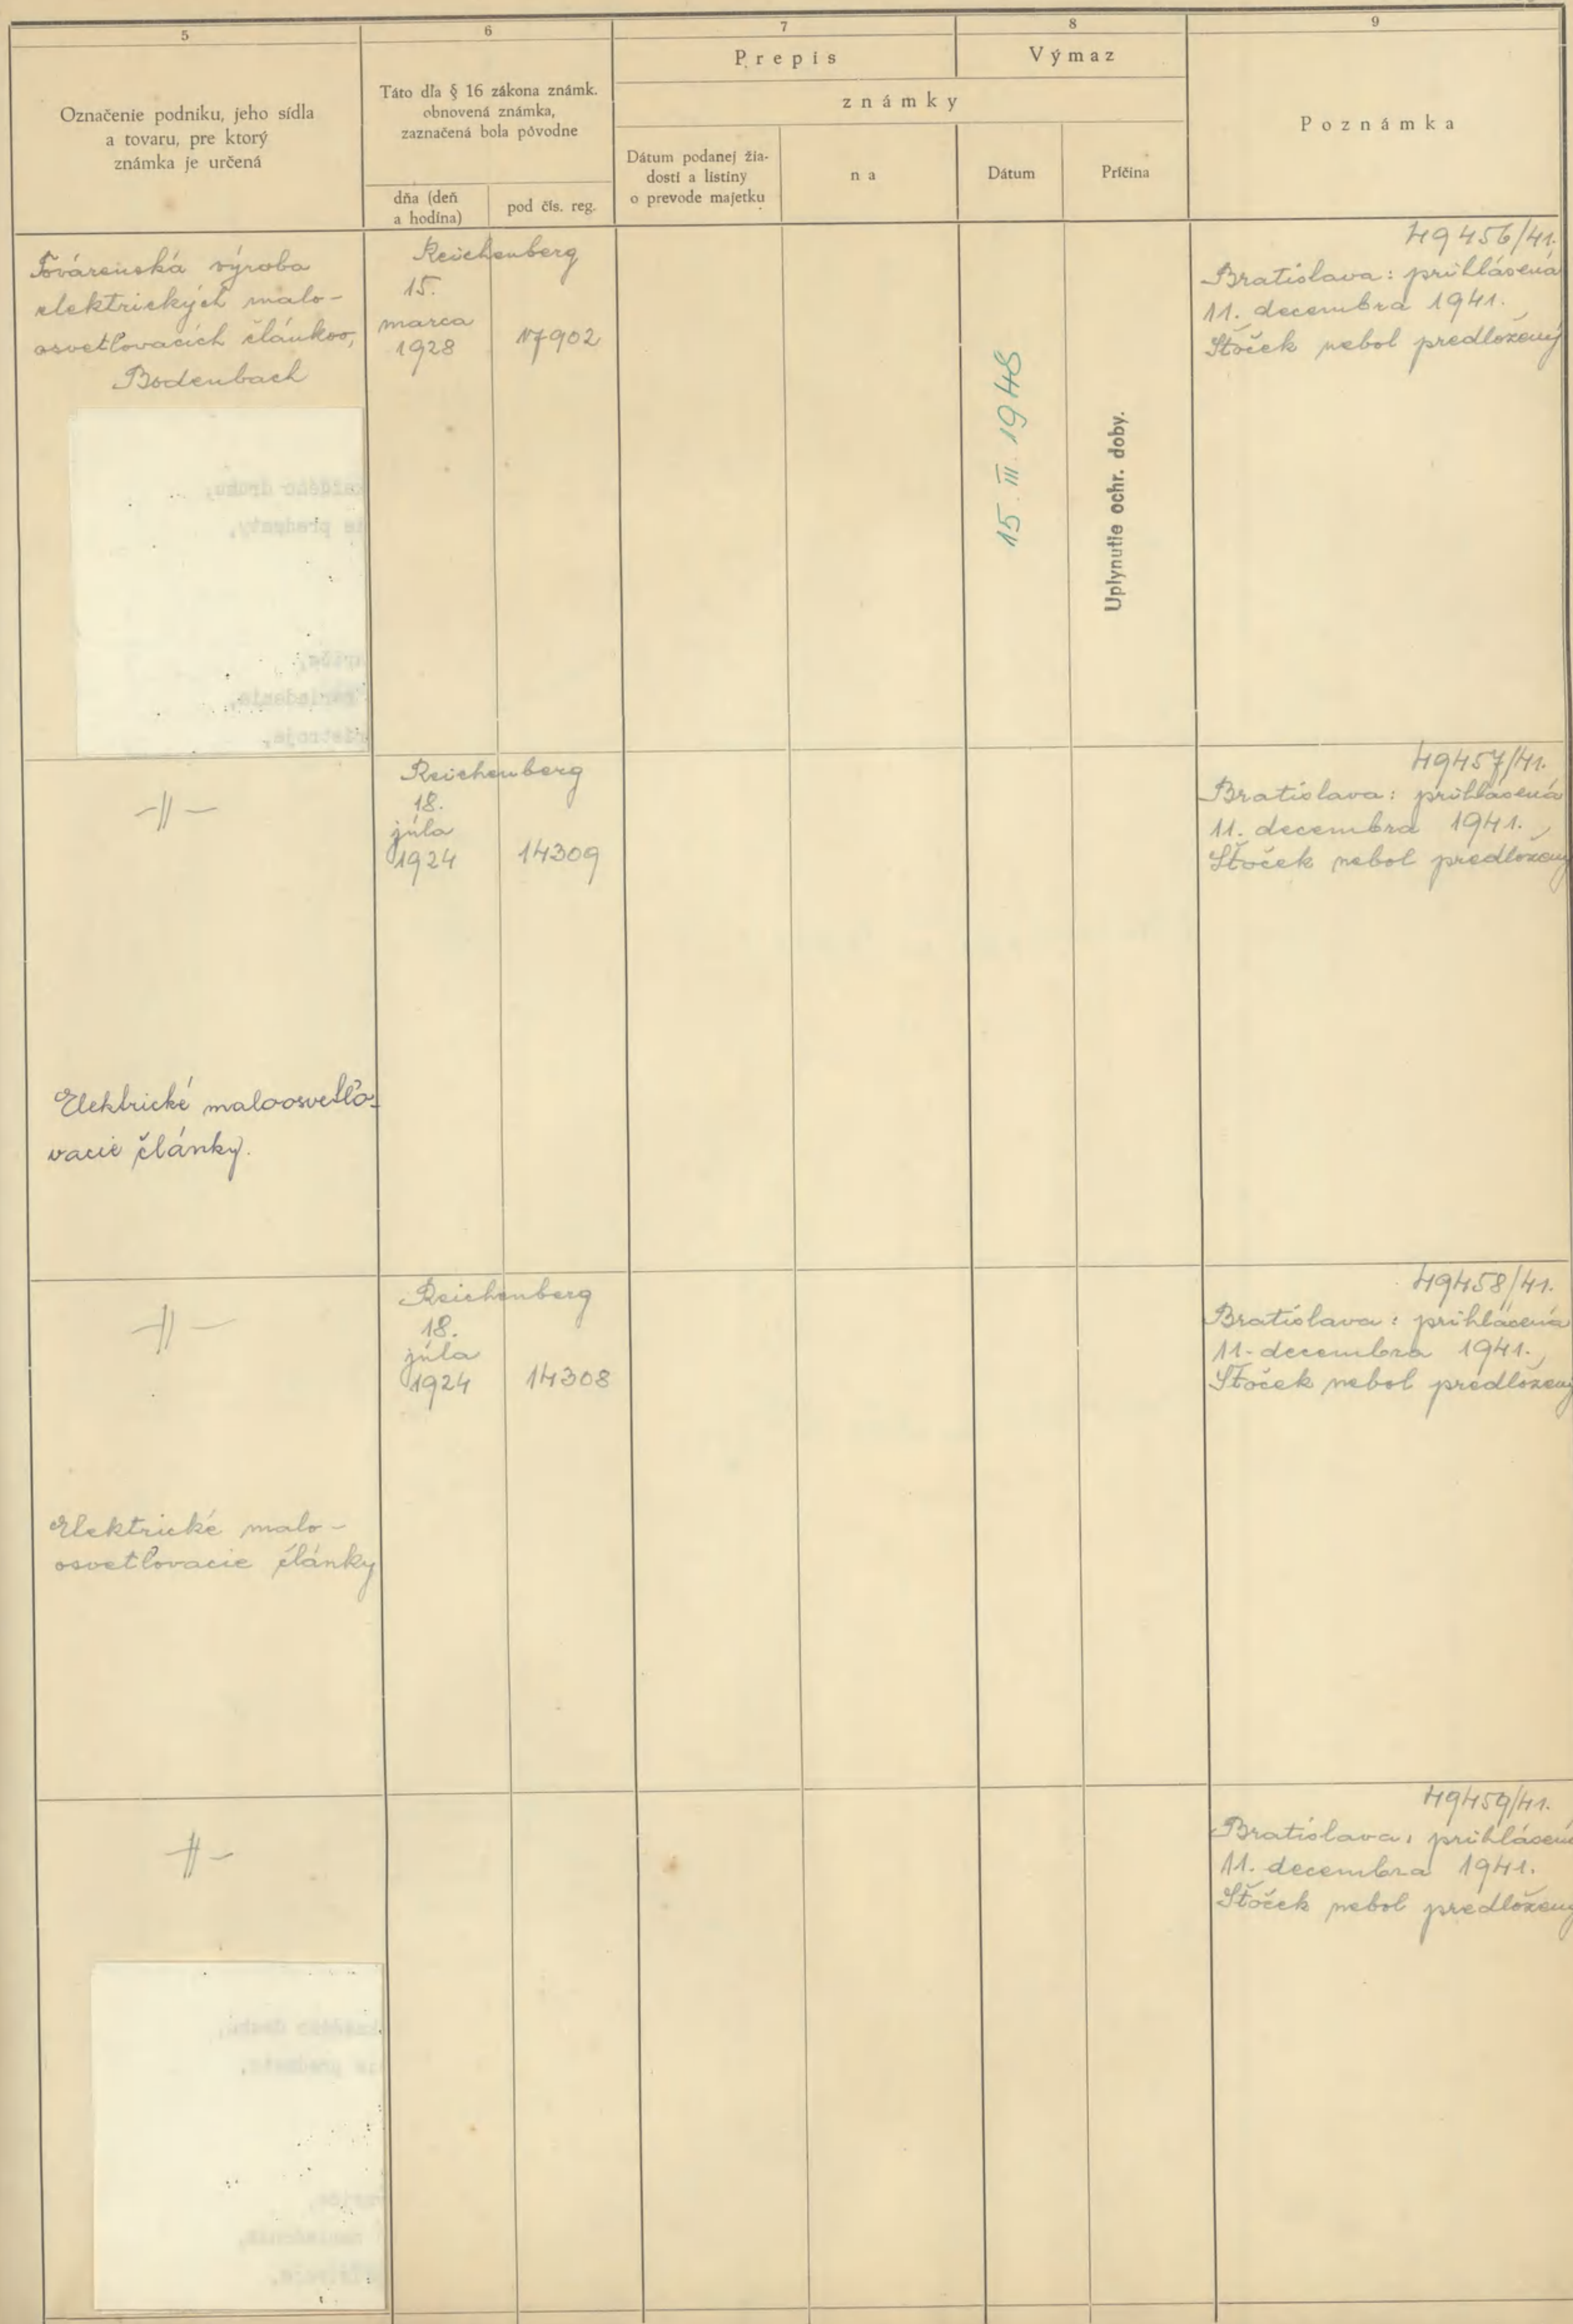 5
6
7
8
9
Označenie podniku, jeho sídla
a tovaru, pre ktorý
známka je určená
Táto dľa § 16 zákona známk.
obnovená známka,
zaznačená bola pôvodne
dňa (deň
a hodina)
pod čís. reg.
Prepis
Výmaz
známky
Dátum podanej žia-
dosti a listiny
o prevode majetku
na
Dátum
Príčina
Poznámka
Továrenská výroba
elektrických malo-
osvetľovacích článkov,
Bodenbach
Reichenberg
15.
marca
1928
17902
15. III. 1948
Uplynutie ochr. doby.
49456/41.
Bratislava: prihlásená
11. decembra 1941.
Štoček nebol predložený
-||-
Elektrické maloosvetľo-
vacie články.
Reichenberg
18.
júla
1924
14309
49457/41.
Bratislava: prihlásená
11. decembra 1941.
Štoček nebol predložený
-||-
Elektrické malo-
osvetľovacie články
Reichenberg
18.
júla
1924
14308
49458/41.
Bratislava: prihlásená
11. decembra 1941.
Štoček nebol predložený
-||-
49459/41.
Bratislava: prihlásená
11. decembra 1941.
Štoček nebol predložený